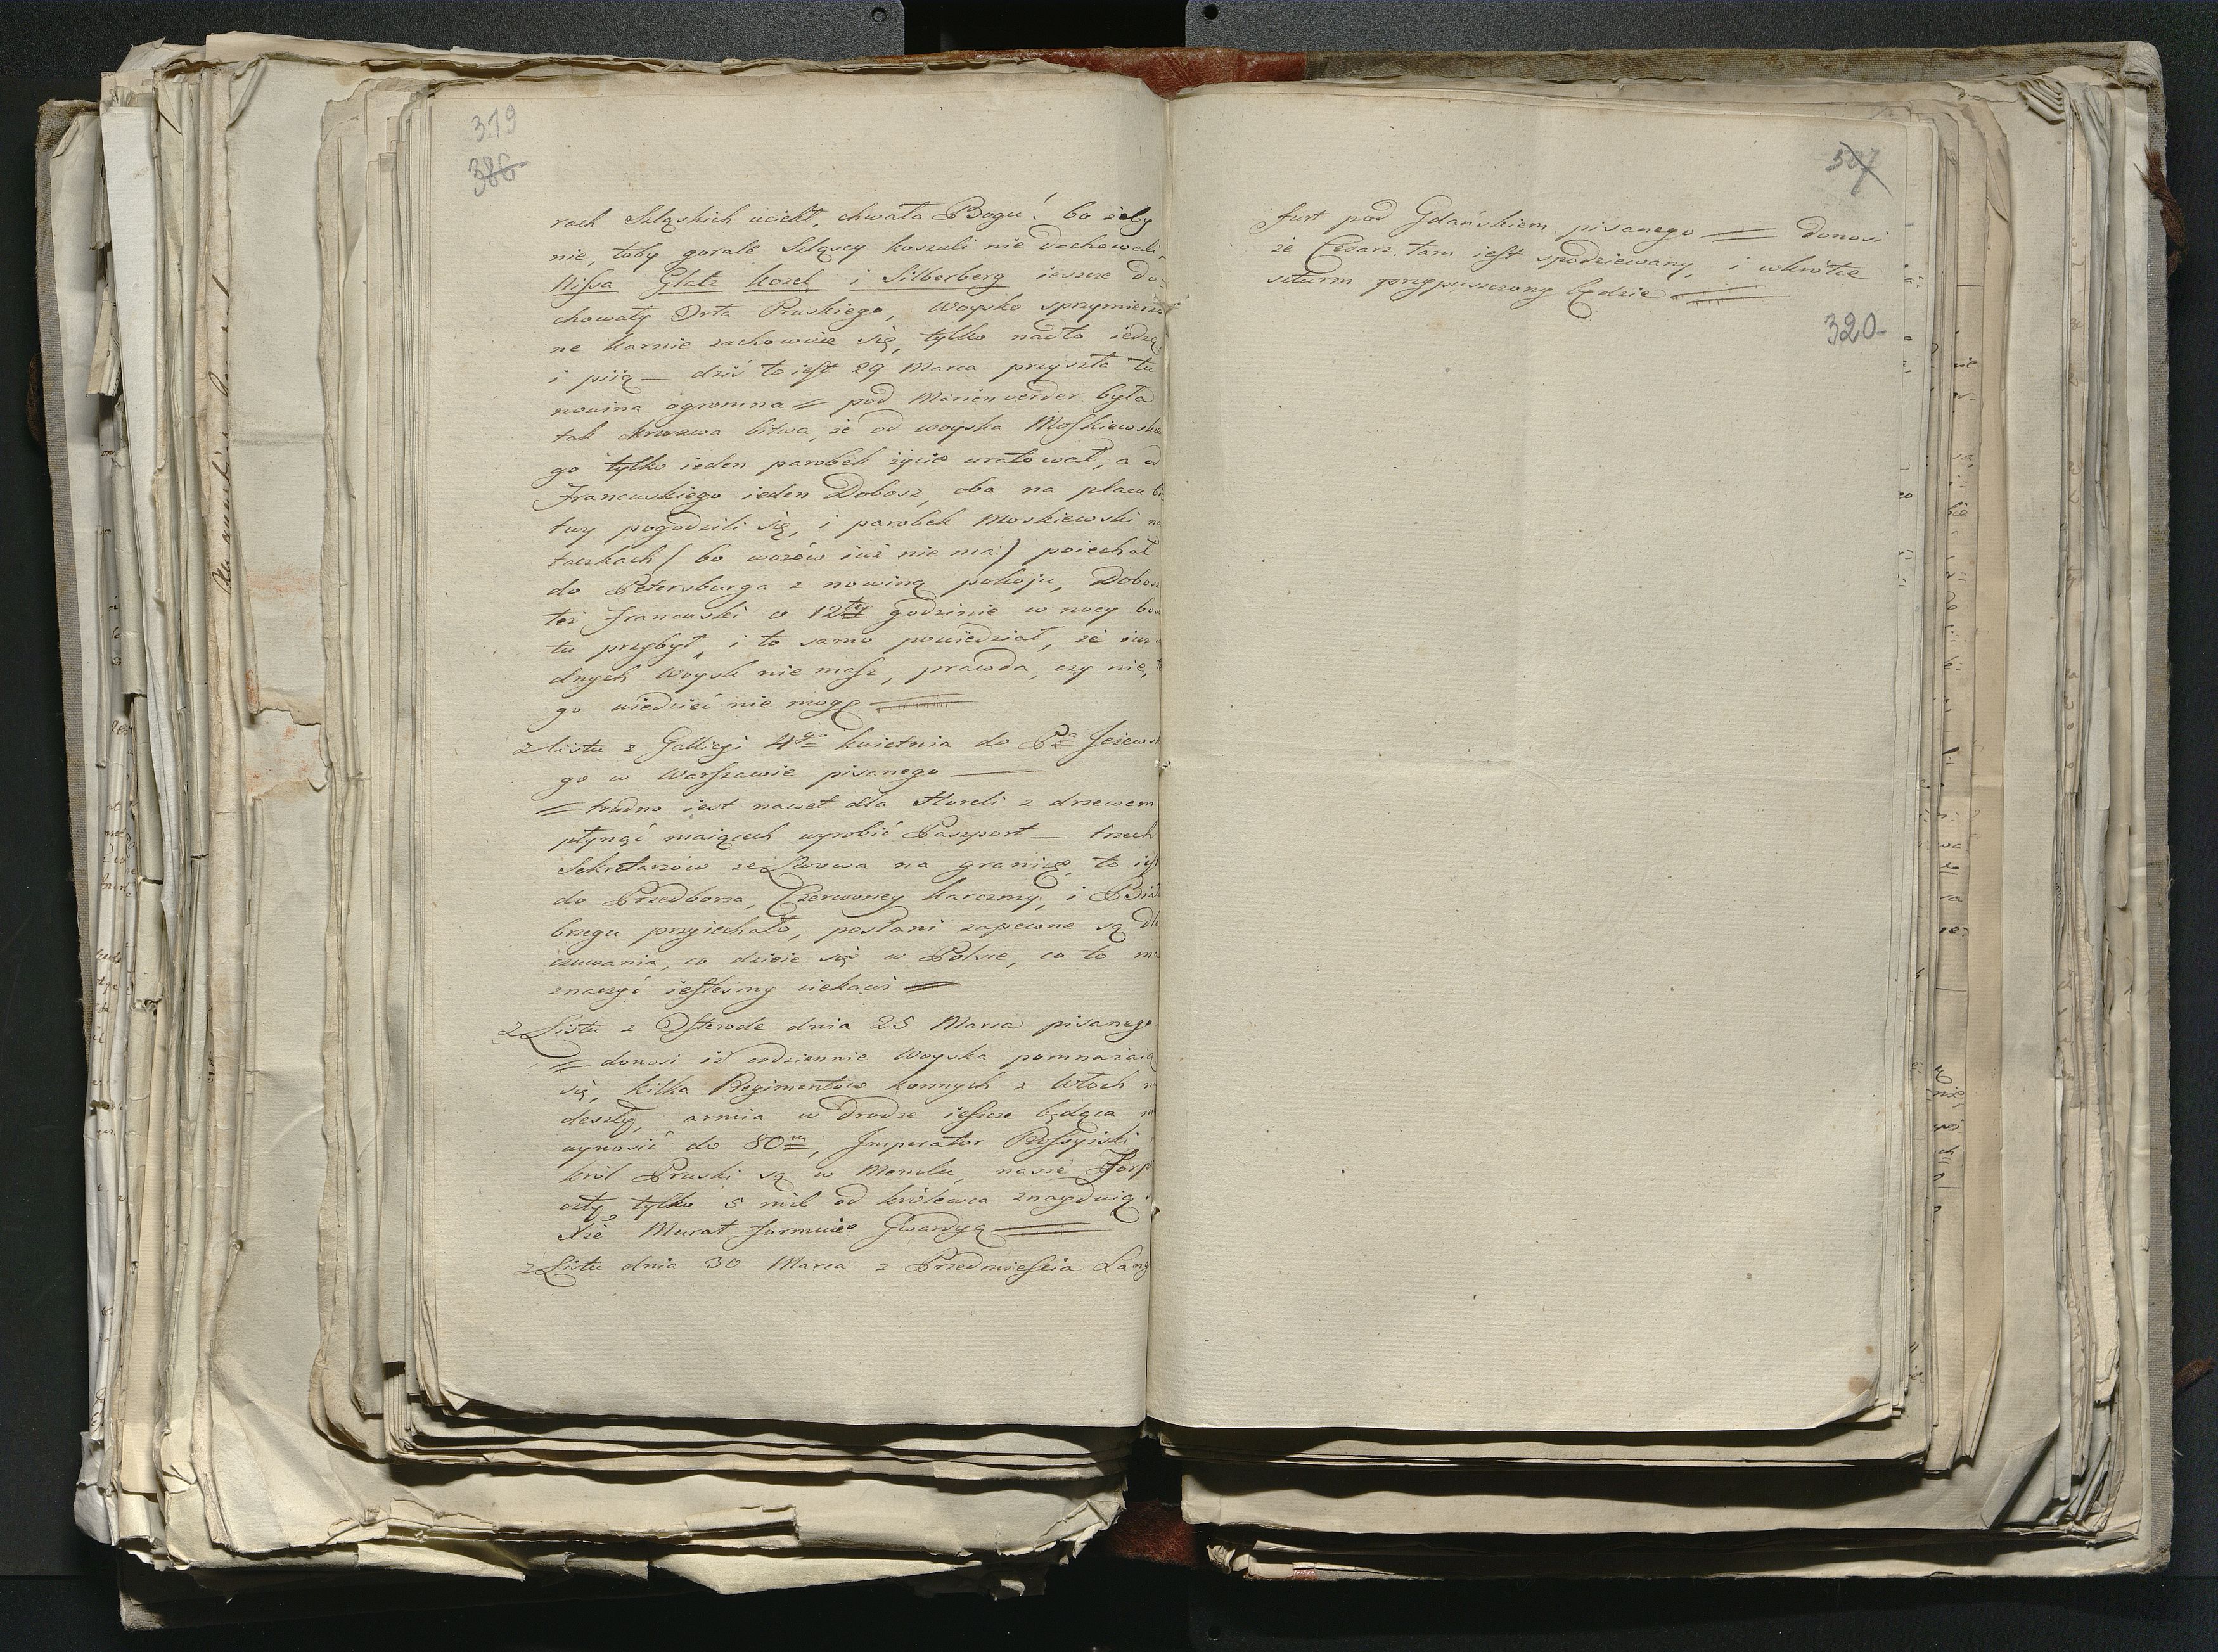 319
386
rach Szląskich uciekł, chwała Bogu! bo żeby
nie, toby gorale Szląscy koszuli nie dochowali,
Nissa Glatz Kozel i Silberberg ieszcze do-
chowały Orła Pruskiego, Woysko sprzymierzo
ne karnie zachowuie się, tylko nadto iedzą
i piią — dziś to iest 29 Marca przyszła tu
nowina ogromna = pod Marienverder była
tak krwawa bitwa, że od woyska Moskiewskie
go tylko ieden parobek życie uratował, a od
Francuskiego ieden Dobosz, oba na placu bi
twy pogodzili się, i parobek Moskiewski na
taczkach (bo wozów iuż nie ma:) poiechał
do Petersburga z nowiną pokoju, Dobosz
też Francuski o 12tey godzinie w nocy
tu przybył, i to samo powiedział, że iuż
dnych Woysk nie masz, prawda, czy nie,
go wiedzieć nie mogę =
z listu z Gallicyi 4go kwietnia do Pa Jeżews
go w Warszawie pisanego —
= trudno iest nawet dla Floreli z drzewem
płynąć maiących wyrobić Paszport — trzech
Sekretarzów ze Lwowa na granicę, to iest
do Przedborza, Czerwoney karczmy, i Biało
brzegu przyiechało, posłani zapewne są dla
czuwania, co dzieie się w Polsce, co to ma
znaczyć iesteśmy ciekawi =
z Listu z Osterode dnia 25 Marca pisanego
= donosi iż codziennie Woyska pomnażaią
się, kilka Regimentów konnych z Włoch
deszły, armia w drodze ieszcze będąca
wynosić do 80m, Imperator Rossyiski
król Pruski są w Memlu, nasze Forp
oszty tylko 5 mil od królewca znayduią
Xże Murat formuie Gwardyą =
z Listu dnia 30 Marca z Przedmieścia Lang
507
furt pod Gdańskiem pisanego = donosi
że Cesarz tam iest spodziewany, i wkrótce
szturm przypuszczony będzie =
320